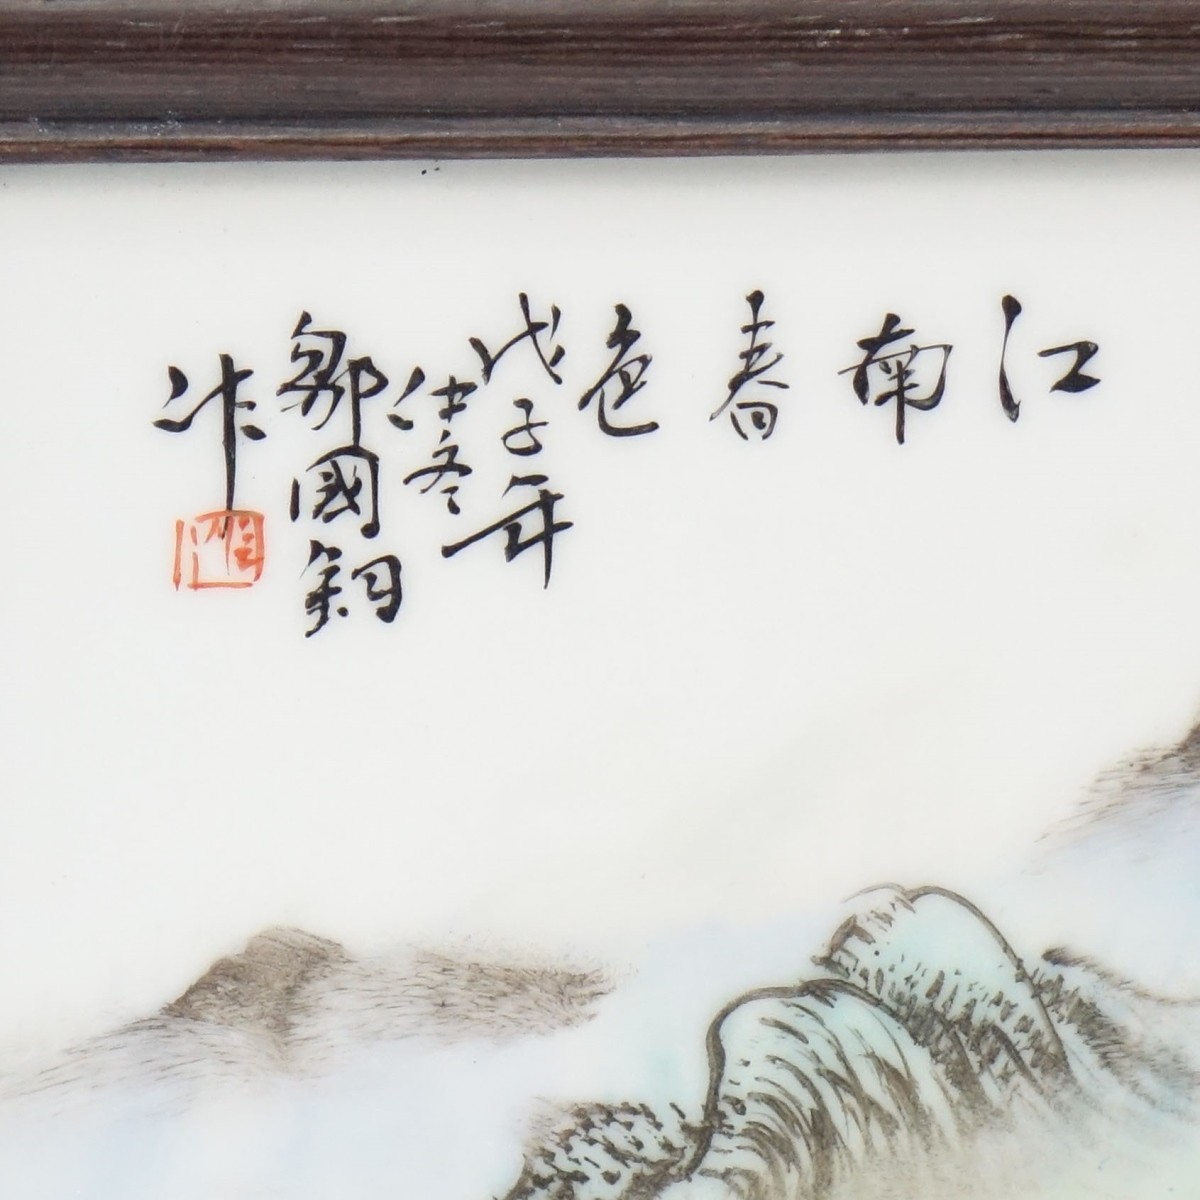 江南春色
戊子年
仲冬
鄒國鈞
作